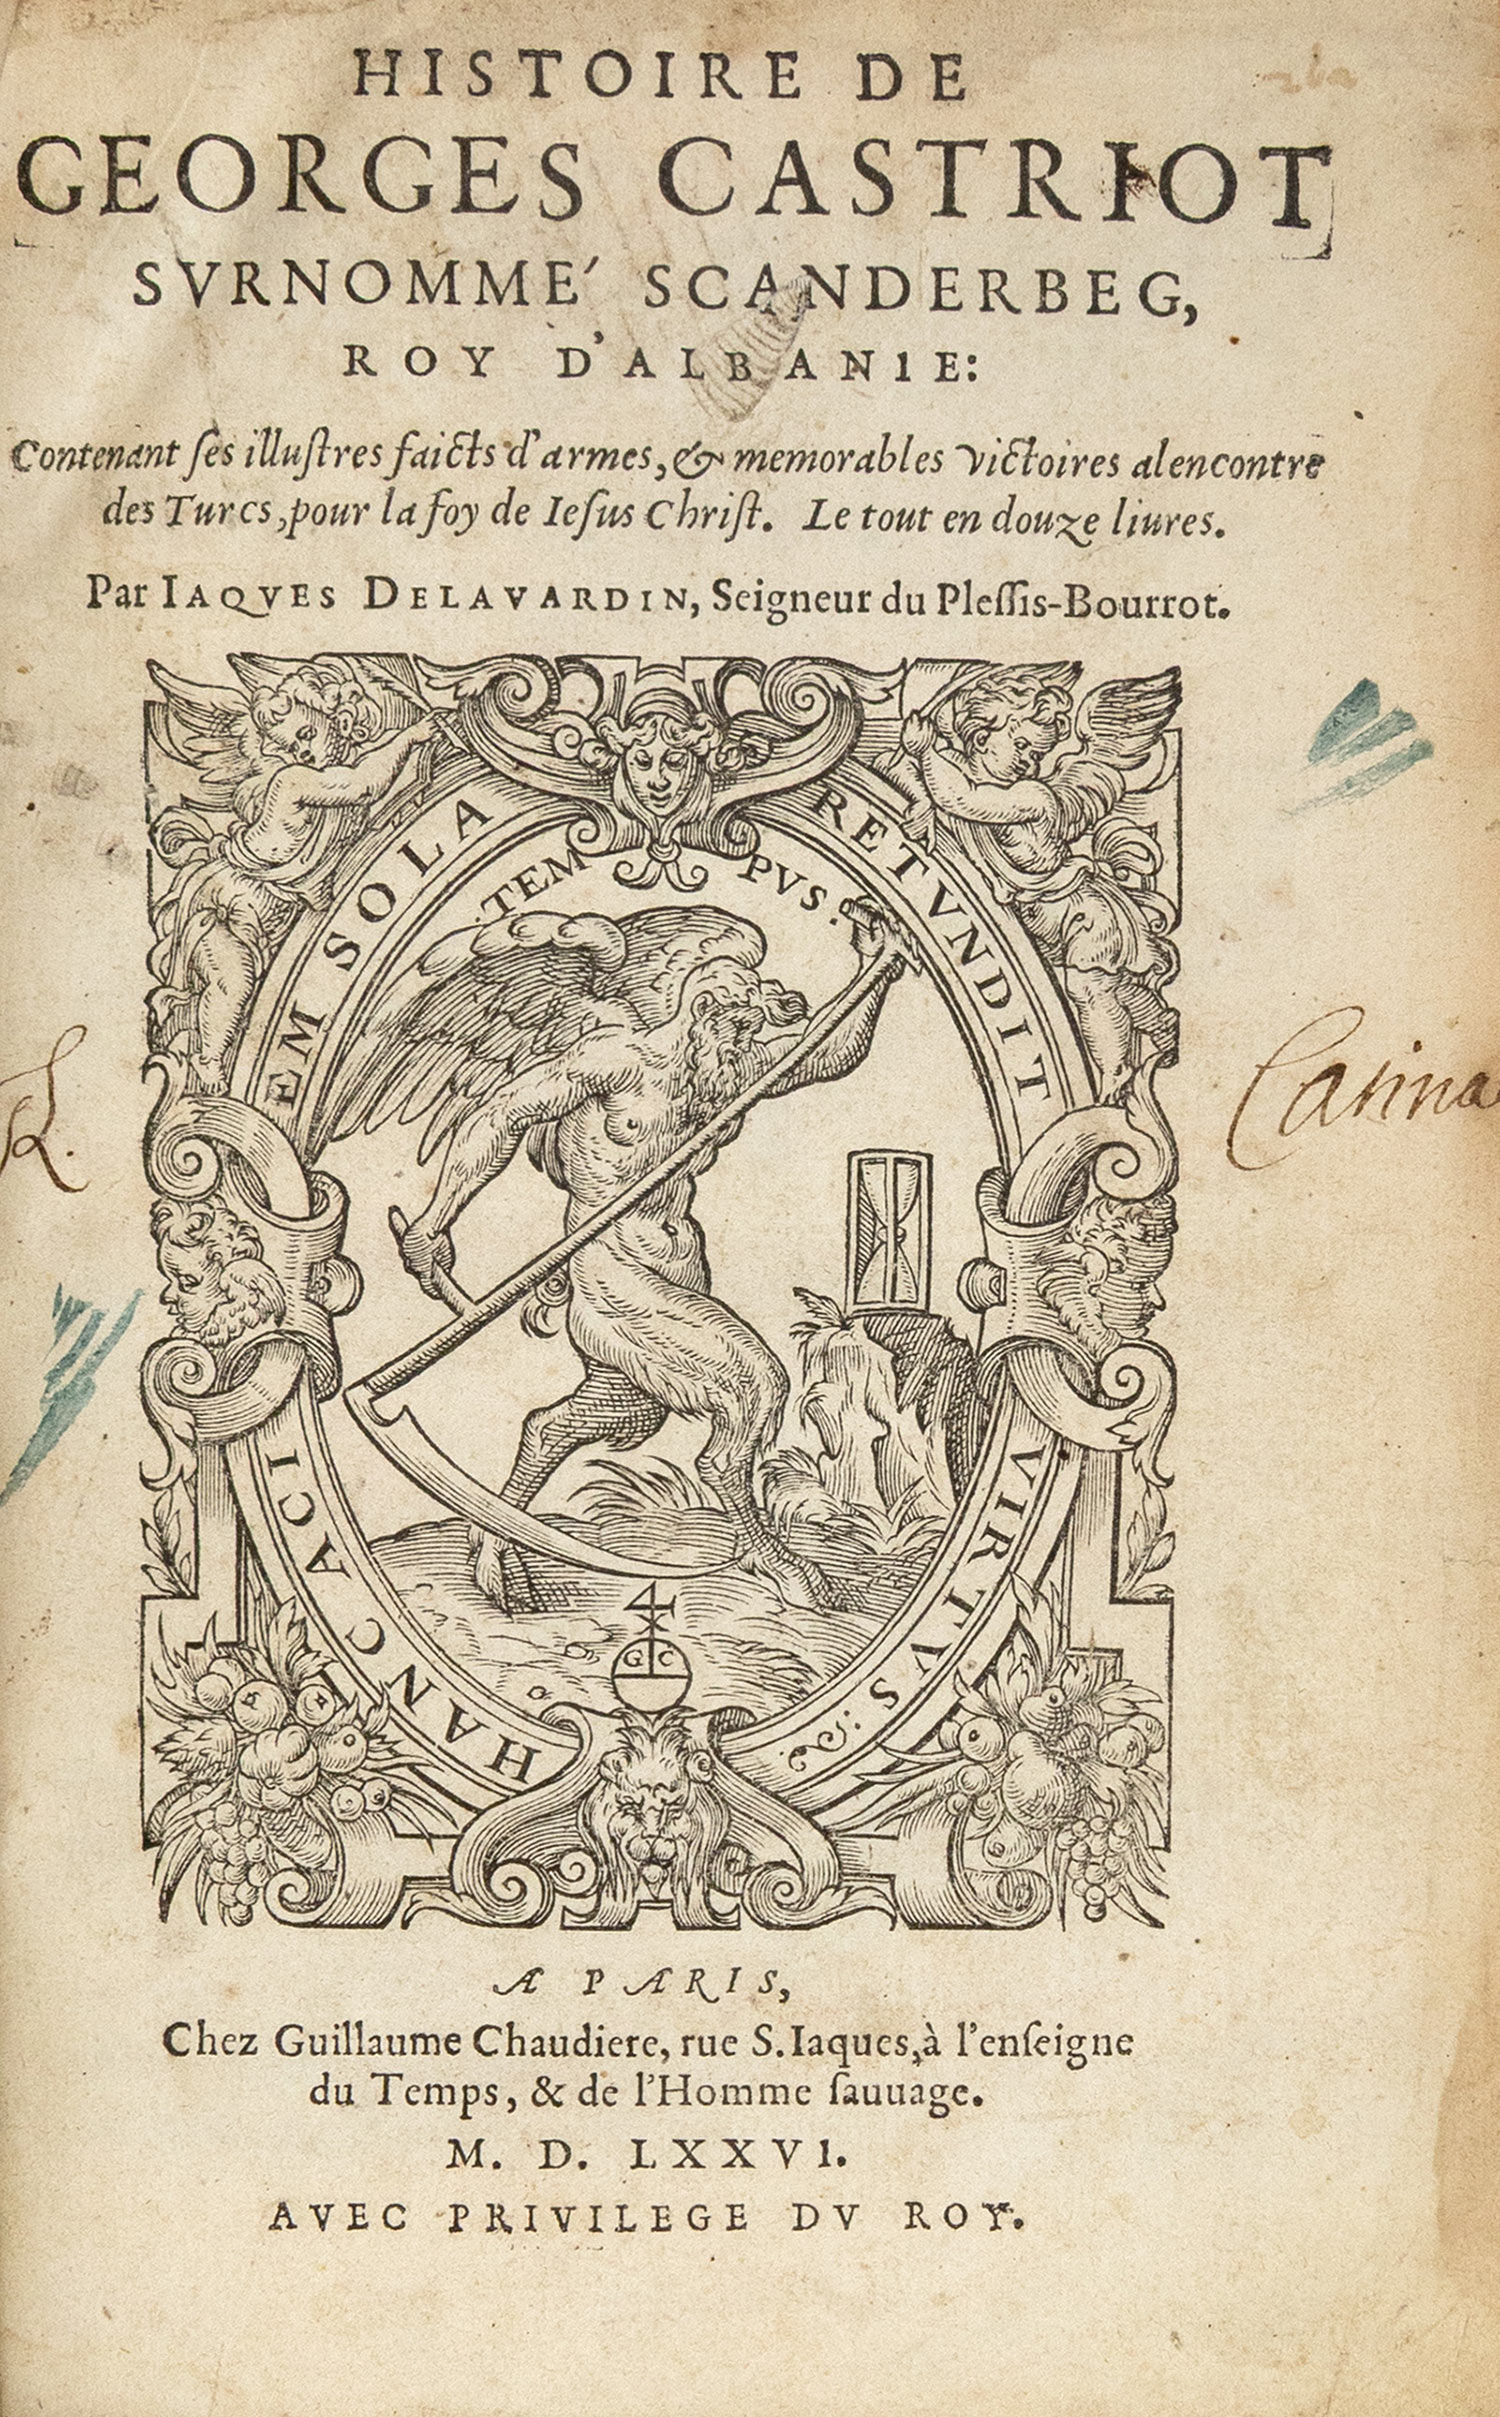 HISTOIRE DE
GEORGES CASTRIOT
SVRNOMME´ SCANDERBEG,
ROY D'ALBANIE:
Contenant ſes illuſtres faicts d'armes, & memorables victoires alencontre
des Turcs, pour la foy de Ieſus Chriſt. Le tout en douze liures.
Par IAQVES DELAVARDIN, Seigneur du Pleſſis-Bourrot.
HANC ACIEM SOLA RETVNDIT VIRTVS:
.TEMPVS.
G C
A PARIS,
Chez Guillaume Chaudiere, rue S. Iaques, à l'enſeigne
du Temps, & de l'Homme ſauuage.
M. D. LXXVI.
AVEC PRIVILEGE DV ROY.